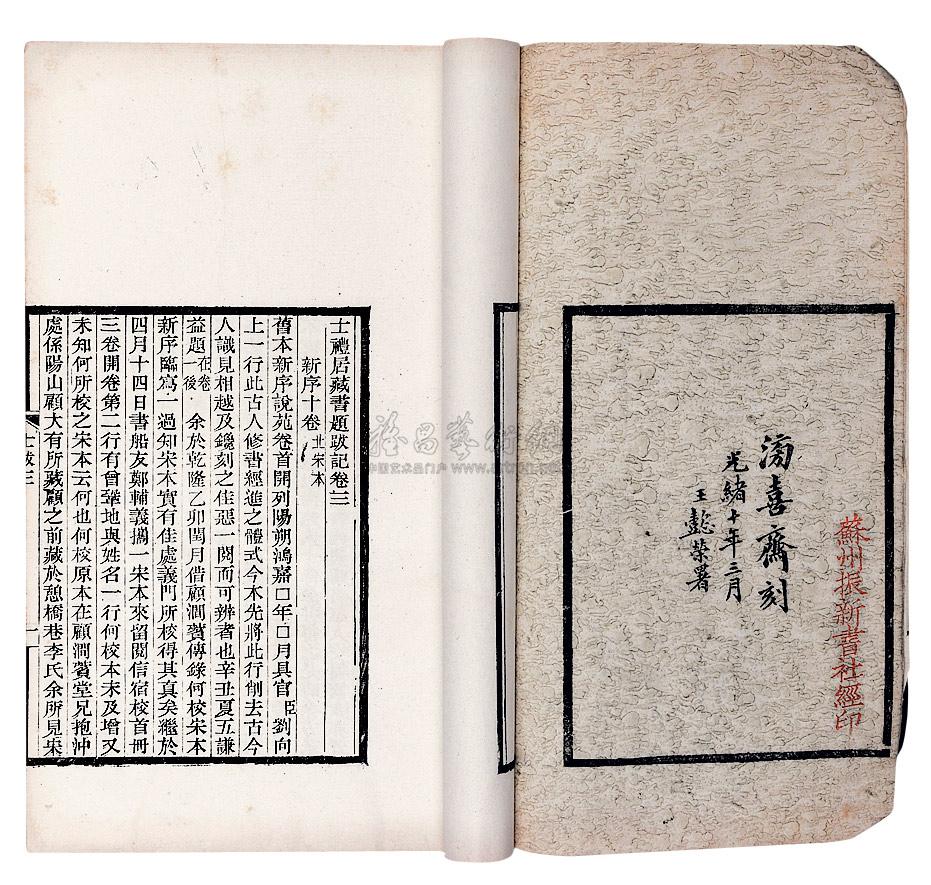 蘇州振新書社經印
滂喜齋刻
光緒十年三月
王懿榮署
士禮居藏書題跋記卷三
新序十卷 北宋本
舊本新序說苑卷首開列陽朔鴻嘉□年□月具官臣劉向
上一行此古人修書經進之體式今本先將此行削去古今
人識見相越及鐫刻之佳惡一閱而可辨者也辛丑夏五謙
益題在卷一後 余於乾隆乙卯閏月借顧澗薲傳錄何校宋本
新序臨寫一過知宋本實有佳處義門所校得其真矣繼於
四月十四日書船友鄭輔義攜一宋本來留閱信宿校首冊
三卷開卷第二行有曾鞏地與姓名一行何校本未及增又
未知何所校之宋本云何也何校原本在顧澗薲堂兄抱沖
處係陽山顧大有所藏顧之前藏於憩橋巷李氏余所見宋
士跋三
一